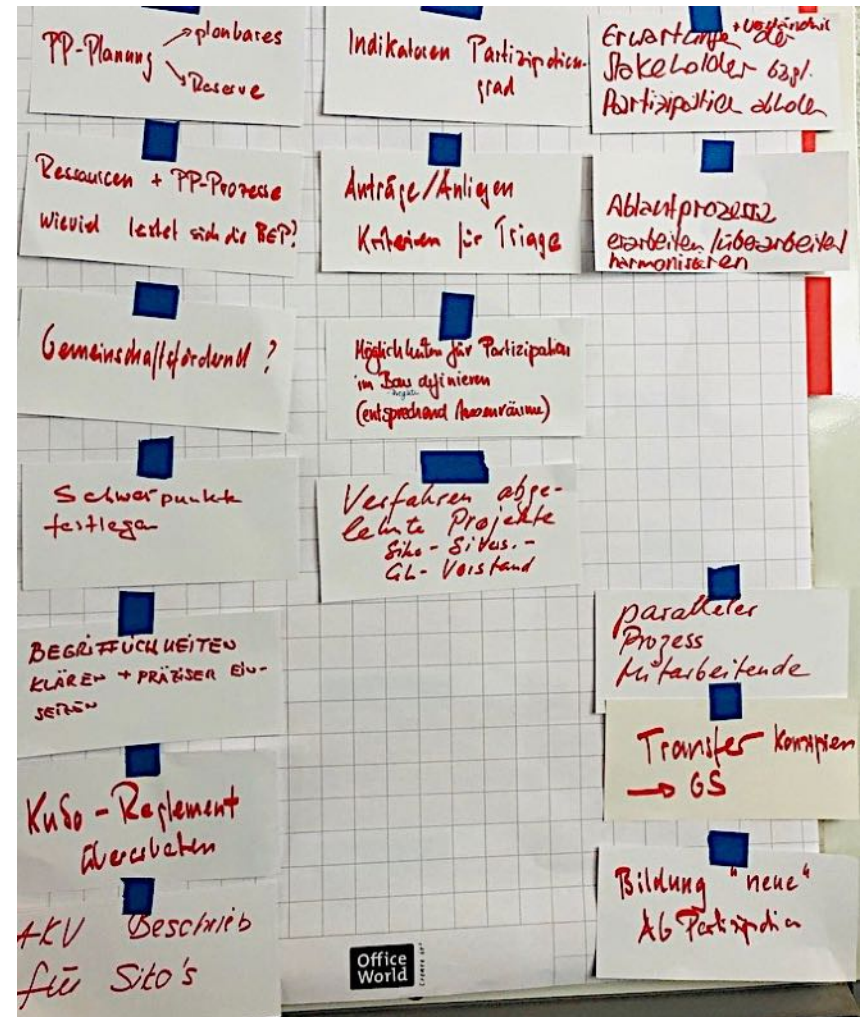 PP-Planung
planbares
Reserve
Ressourcen + PP-Prozesse
Wieviel leistet sich die BEP?
Gemeinschaftsfördernd ?
Schwerpunkte
festlegen
BEGRIFFLICHKEITEN
KLÄREN + PRÄZISER EIN-
SETZEN
KuSo - Reglement
überarbeiten
AKV Beschrieb
für Sito's
Indikatoren Partizipations-
grad
Anträge/Anligen
Kriterien für Triage
Möglichkeiten für Partizipation
im Bau definieren
(entsprechend Aussenräume)
Verfahren abge-
lehnte Projekte
Siko - Sivers. -
GL - Vorstand
Erwartungen + Verständnis der
Stakeholder bzgl.
Partizipation abholen
Ablaufprozesse
erarbeiten/überarbeiten
harmonisieren
paralleler
Prozess
Mitarbeitende
Transfer Konzipieren
→ GS
Bildung "neue"
AG Partizipation
Office
World